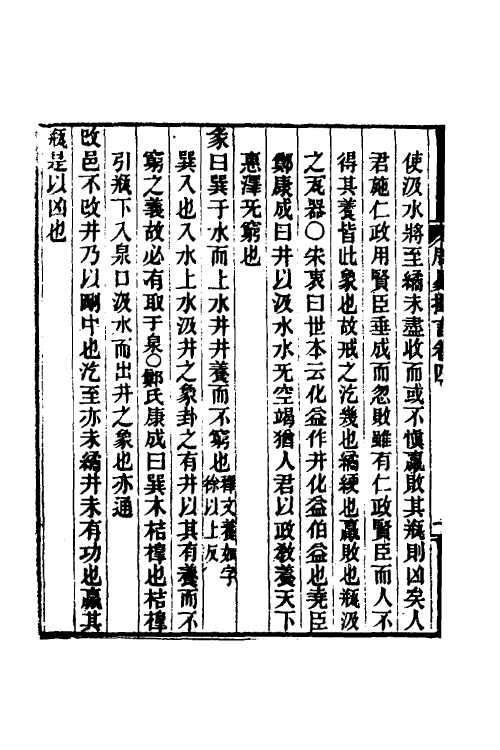 使汲水將至繘未盡收而或不慎羸敗其瓶則凶矣人
君施仁政用賢臣垂成而忽敗雖有仁政賢臣而人不
得其養皆此象也故戒之汔幾也繘綆也羸敗也瓶汲
之瓦器〇宋衷曰世本云化益作井化益伯益也堯臣
鄭康成曰井以汲水水无空竭猶人君以政敎養天下
惠澤无窮也
彖曰巽于水而上水井井養而不窮也釋文養如字徐以上反
巽入也入水上水汲井之象卦之有井以其有養而不
窮之義故必有取于泉〇鄭氏康成曰巽木桔橰也桔橰
引瓶下入泉口汲水而出井之象也亦通
改邑不改井乃以剛中也汔至亦未繘井未有功也羸其
瓶是以凶也
卷四